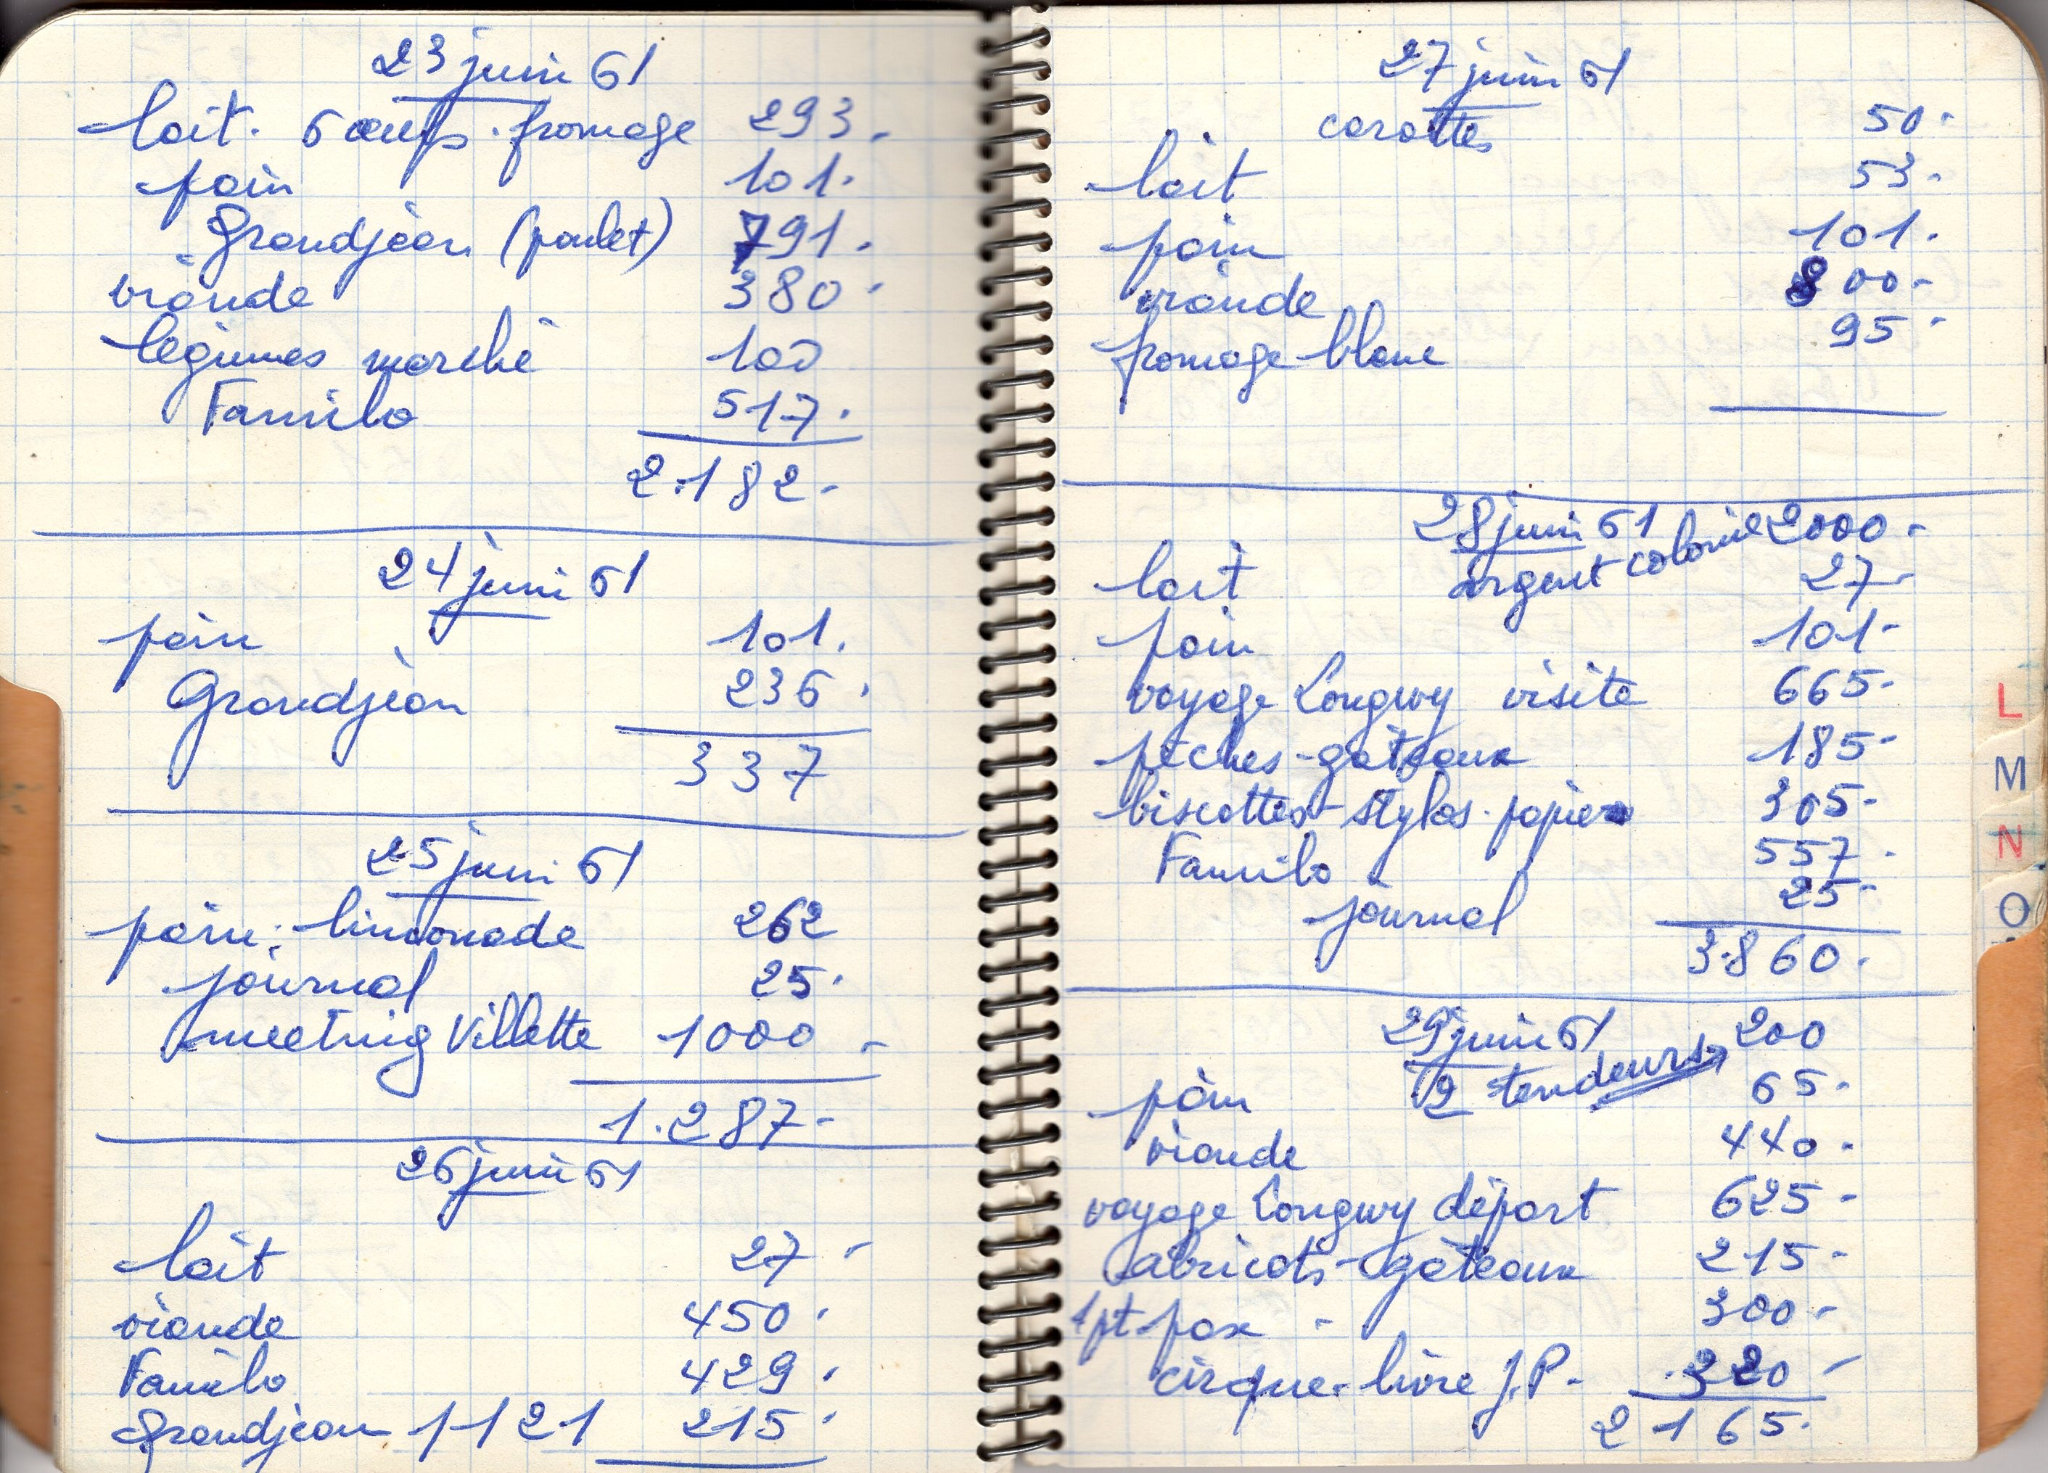 23 juin 61
lait. 6 oeufs. fromage 293.
pain 101.
Grandjean (poulet) 791.
viande 380.
légumes marché 100
Familo 517.
2.182.
24 juin 61
pain 101.
Grandjean 236.
337
25 juin 61
pain. limonade 262
journal 25.
meeting Villette 1000
1.287.
26 juin 61
lait 27
viande 450.
Familo 429.
Grandjean 1121 215.
27 juin 61
carottes 50.
lait 53.
pain 101.
viande 800.
fromage blanc 95
28 juin 61
argent colonie 2000.
lait 27
pain 101.
voyage Longwy visite 665.
pêches-gâteaux 185.
biscottes-stylos-papier 305.
Familo 557.
journal 25.
3.860.
29 juin 61
2 tendeurs 200
pain 65.
viande 440.
voyage Longwy départ 625
abricots-gâteaux 215
1 pt. pax 300
cirque-livre J.P. 320
2165.
L
M
N
O